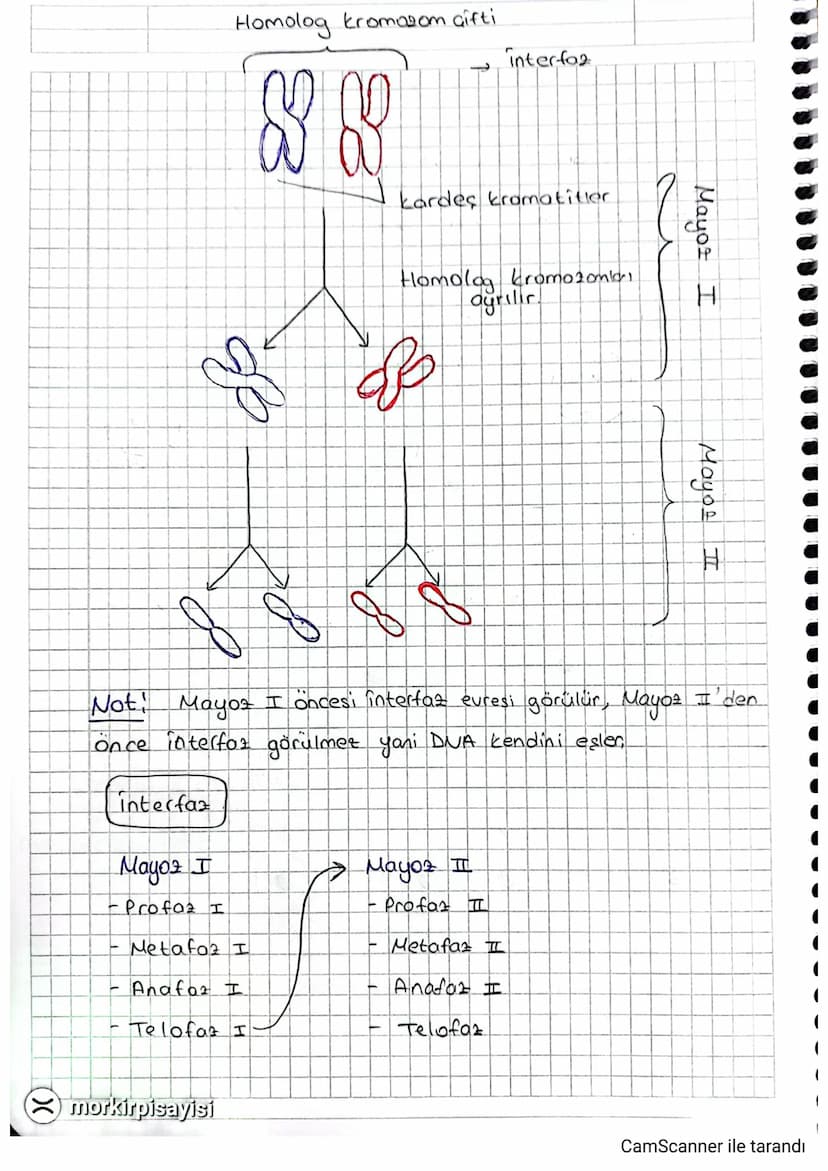 Homolog kromozom çifti
→ interfaz
kardeş kromatitler
Mayoz I
Homolog kromozomları
ayrılır.
Mayoz II
Not! Mayoz I öncesi interfaz evresi görülür, Mayoz II'den
önce interfaz görülmez yani DNA kendini eşler.
interfaz
Mayoz I
- Profaz I
- Metafaz I
- Anafaz I
- Telofaz I
Mayoz II
- Profaz II
- Metafaz II
- Anafaz II
- Telofaz
morkirpisayisi
CamScanner ile tarandı